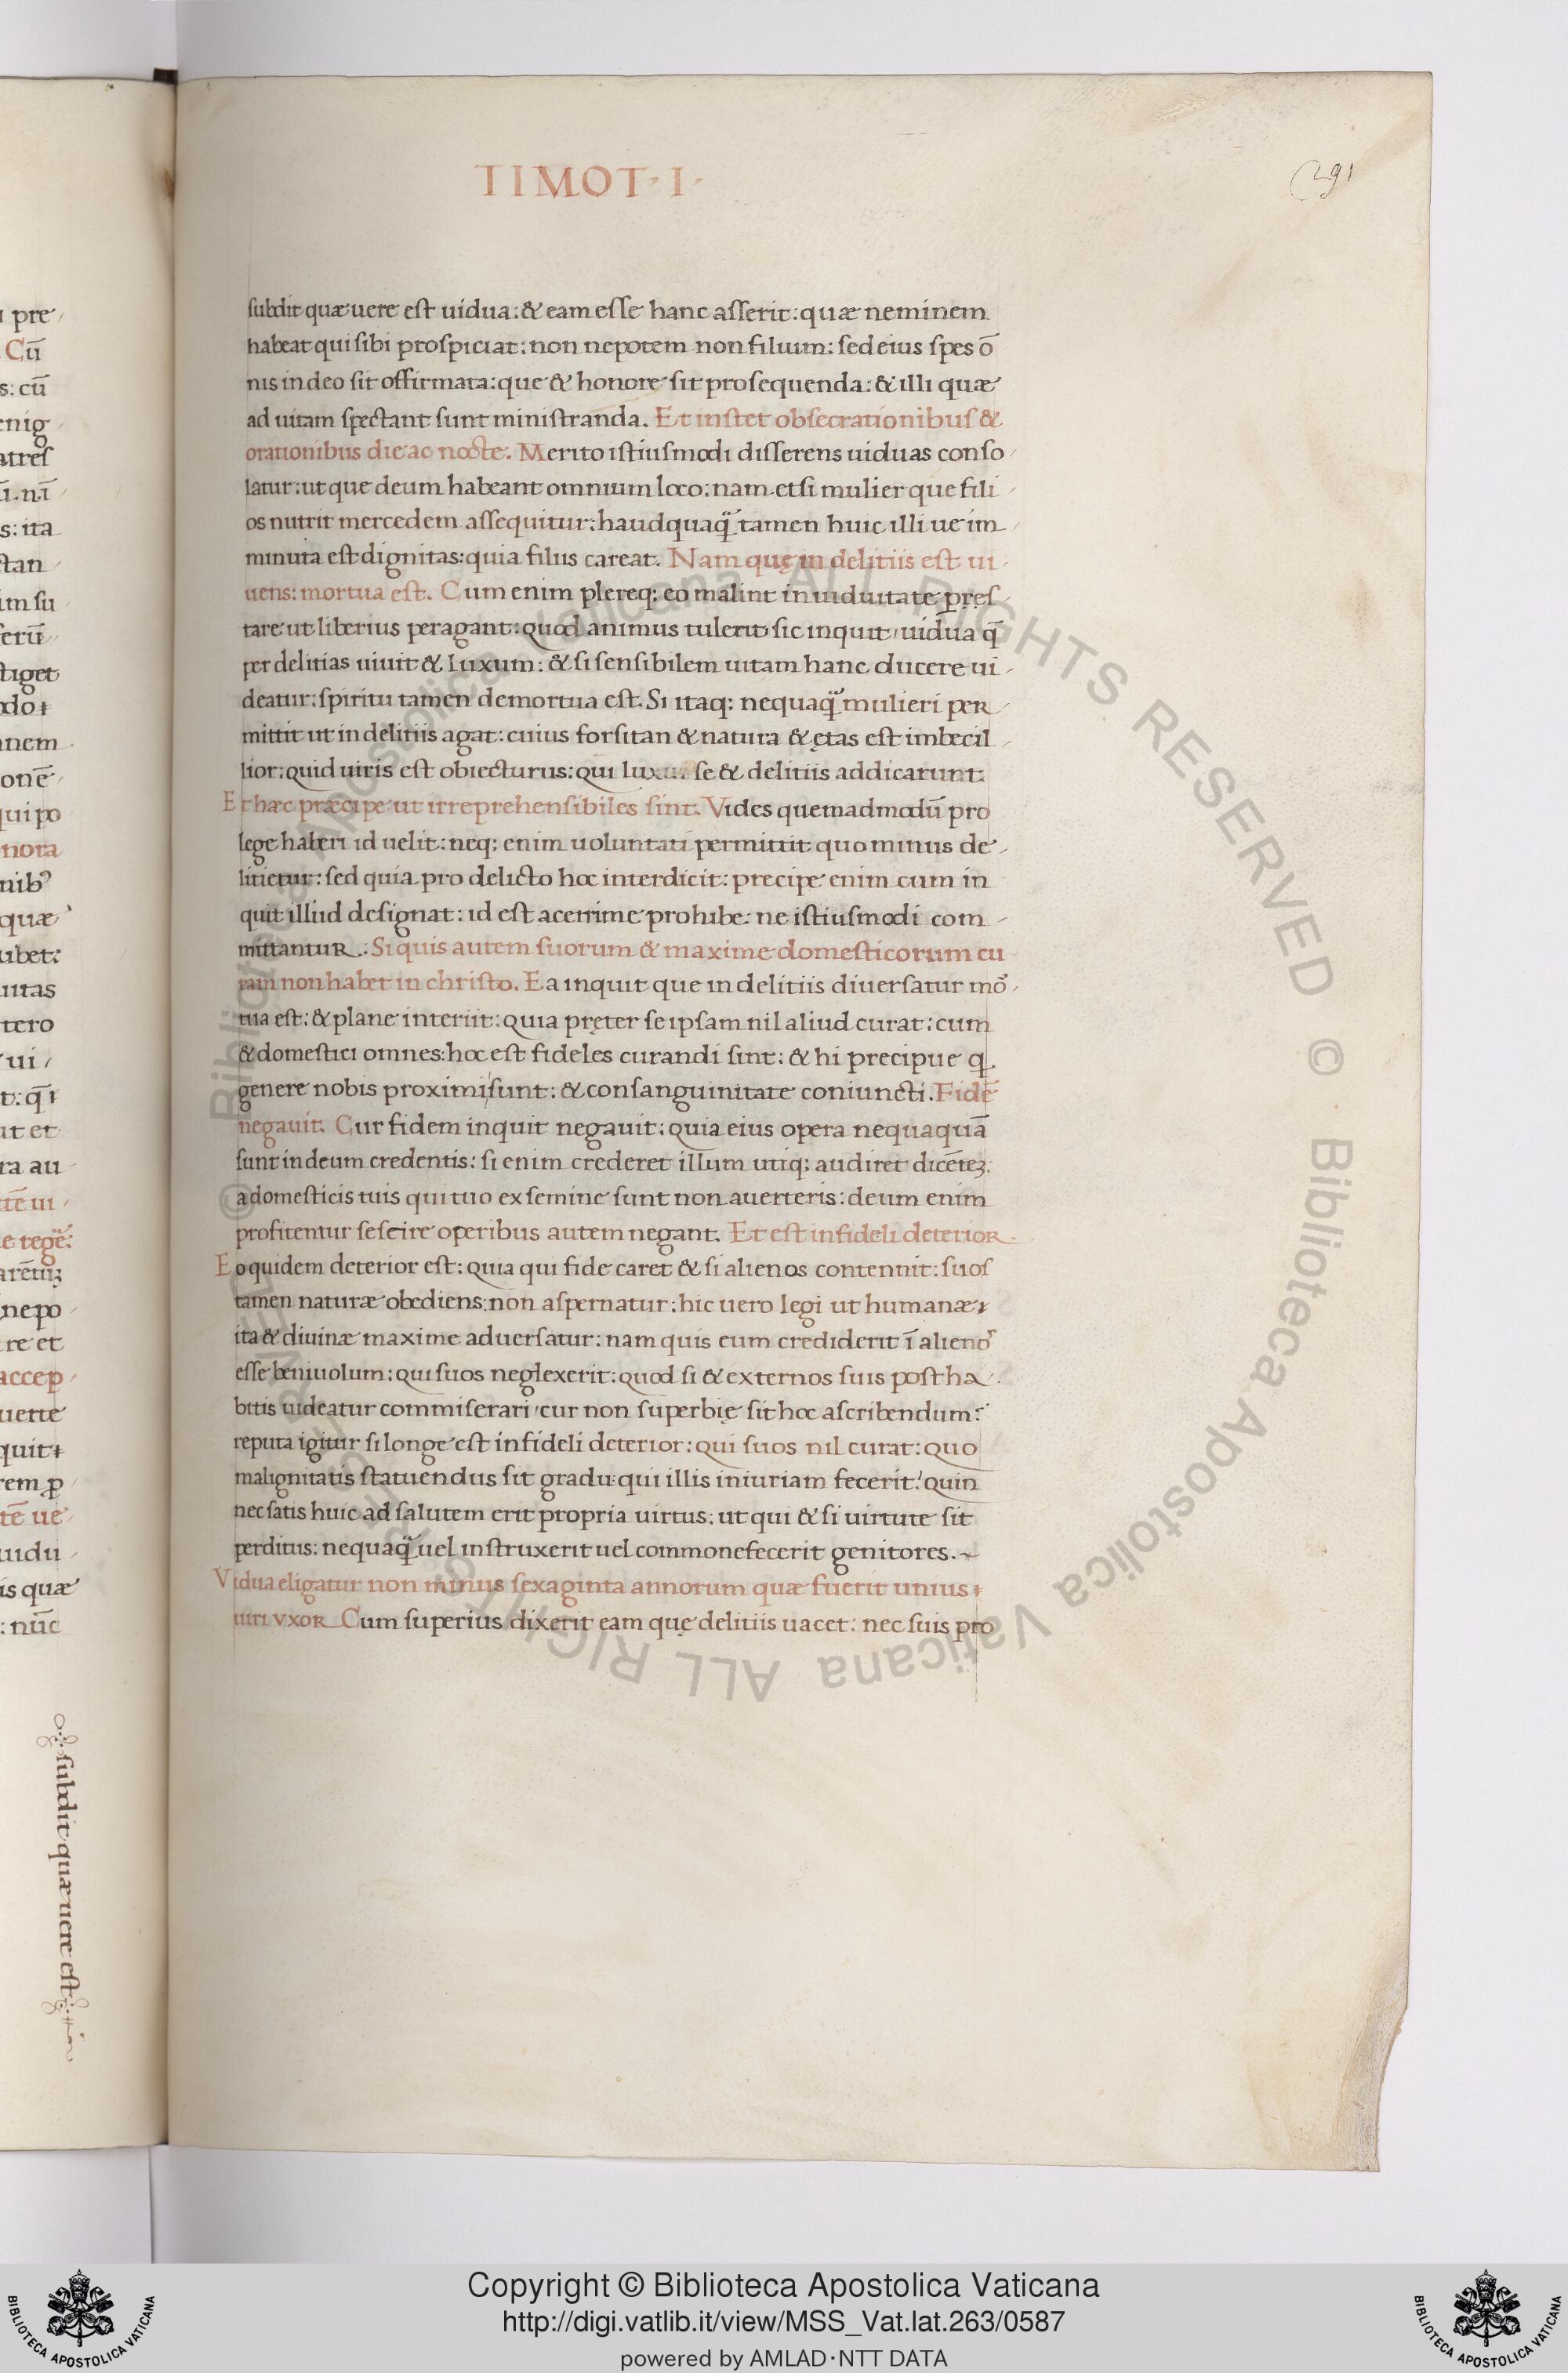 TIMOT· I·
291
subdit quæ uere est uidua: & eam esse hanc asserit: quæ neminem
habeat qui sibi prospiciat: non nepotem non filium: sed eius spes õ
nis in deo sit offirmata: que & honore sit prosequenda: & illi quæ
ad uitam spectant sunt ministranda. Et instet obsecrationibus &
orationibus die ac nocte. Merito istiusmodi disserens uiduas conso
latur: ut que deum habeant omnium loco: nam etsi mulier que fili
os nutrit mercedem assequitur: haudquaq̃ tamen huic illi ue im
minuta est dignitas: quia filiis careat. Nam quę in delitiis est ui
uens: mortua est. Cum enim plereq; eo malint in uiduitate pręs
tare ut liberius peragant: quod animus tulerit sic inquit uidua q̃
per delitias uiuit & luxum: & si sensibilem uitam hanc ducere ui
deatur: spiritu tamen demortua est. Si itaq; nequaq̃ mulieri per
mittit ut in delitiis agat: cuius forsitan & natura & ętas est imbecil
lior: quid uiris est obiecturus: qui se & delitiis addicarunt:
Et hæc præcipe ut irreprehensibiles sint. Vides quemadmodũ pro
lege haberi id uelit: neq; enim uoluntati permittit quo minus de
litietur: sed quia pro delicto hoc interdicit: precipe enim cum in
quit illud designat: id est acerrime prohibe: ne istiusmodi com
mittantur. Si quis autem suorum & maxime domesticorum cu
ram non habet in christo. Ea inquit que in delitiis diuersatur mo᷒
tua est: & plane interiit: quia pręter se ipsam nil aliud curat: cum
& domestici omnes: hoc est fideles curandi sint: & hi precipue q
genere nobis proximi sunt: & consanguinitate coniuncti. Fidẽ
negauit. Cur fidem inquit negauit: quia eius opera nequaquã
sunt in deum credentis: si enim crederet illum utiq; audiret dicẽteʒ.
a domesticis tuis qui tuo ex semine sunt non auerteris: deum enim
profitentur se scire operibus autem negant. Et est infideli deterior
Eo quidem deterior est: quia qui fide caret & si alienos contennit: suos
tamen naturæ obediens: non aspernatur: hic uero legi ut humanæ
ita & diuinæ maxime aduersatur: nam quis eum crediderit ĩ alieno᷒
esse beniuolum: qui suos neglexerit: quod si & externos suis postha
bitis uideatur commiserari cur non superbię sit hoc ascribendum?
reputa igitur si longe est infideli deterior: qui suos nil curat: quo
malignitatis statuendus sit gradu: qui illis iniuriam fecerit? quin
nec satis huic ad salutem erit propria uirtus: ut qui & si uirtute sit
perditus: nequaq̃ uel instruxerit uel commonefecerit genitores.
Vidua eligatur non minus sexaginta annorum quæ fuerit unius
uiri vxor Cum superius dixerit eam quę delitiis uacet: nec suis pro
subdit quæ uere est
Copyright © Biblioteca Apostolica Vaticana
http://digi.vatlib.it/view/MSS_Vat.lat.263/0587
powered by AMLAD·NTT DATA
© Biblioteca Apostolica Vaticana ALL RIGHTS RESERVED © Biblioteca Apostolica Vaticana ALL RIGHTS RESERVED
BIBLIOTECA APOSTOLICA VATICANA
BIBLIOTECA APOSTOLICA VATICANA